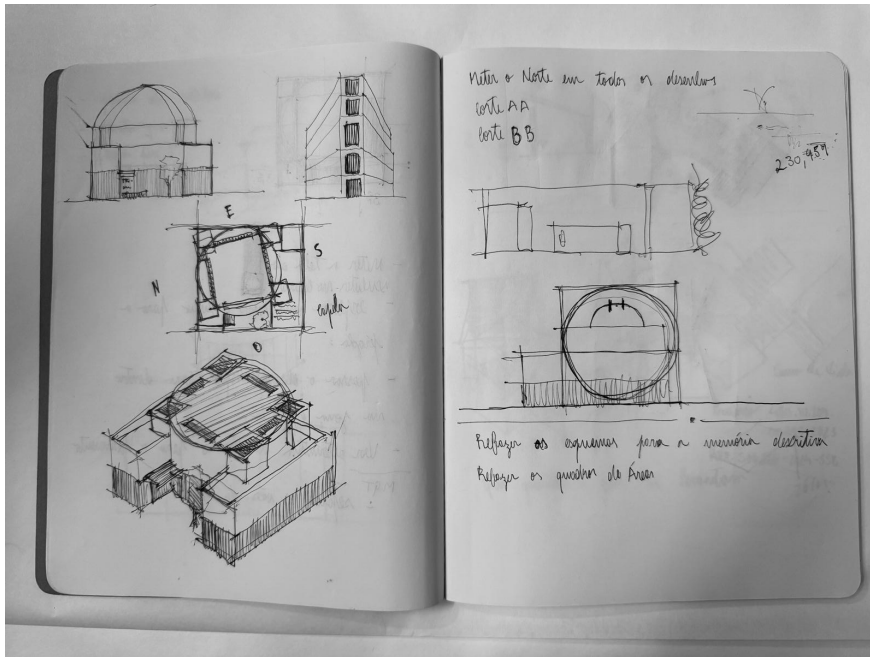 E
S
N
capela
O
Meter o Norte em todos os desenhos
corte AA
corte BB
230,459
Refazer os esquemas para a memória descritiva
Refazer os quadros de Áreas